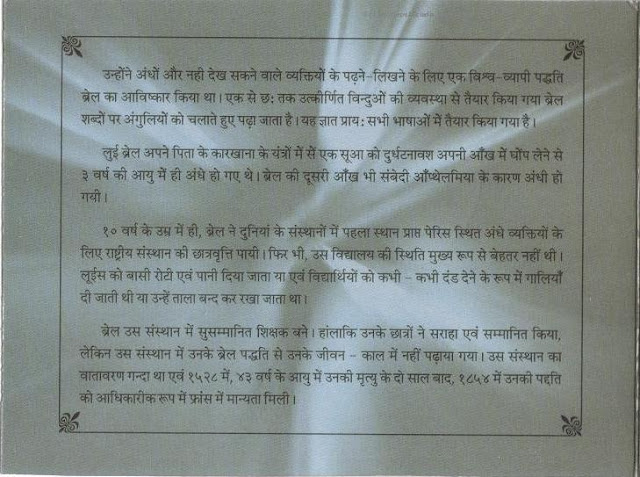 उन्होंने अंधों और नही देख सकने वाले व्यक्तियों के पढ़ने-लिखने के लिए एक विश्व-व्यापी पद्धति
ब्रेल का आविष्कार किया था। एक से छ: तक उत्कीर्णित विन्दुओं की व्यवस्था से तैयार किया गया ब्रेल
शब्दों पर अंगुलियों को चलाते हुए पढ़ा जाता है। यह ज्ञात प्राय: सभी भाषाओं में तैयार किया गया है।
लुई ब्रेल अपने पिता के कारखाना के यंत्रों में सें एक सूआ को दुर्धटनावश अपनी आँख में घोंप लेने से
३ वर्ष की आयु में ही अंधे हो गए थे। ब्रेल की दूसरी आँख भी संवेदी आँप्थेलमिया के कारण अंधी हो
गयी।
१० वर्ष के उम्र में ही, ब्रेल ने दुनियां के संस्थानों में पहला स्थान प्राप्त पेरिस स्थित अंधे व्यक्तियों के
लिए राष्ट्रीय संस्थान की छात्रवृत्ति पायी। फिर भी, उस विद्यालय की स्थिति मुख्य रूप से बेहतर नहीं थी।
लूईस को बासी रोटी एवं पानी दिया जाता या एवं विद्यार्थियों को कभी - कभी दंड देने के रूप में गालियाँ
दी जाती थी या उन्हें ताला बन्द कर रखा जाता था।
ब्रेल उस संस्थान में सुसम्मानित शिक्षक बने। हांलाकि उनके छात्रों ने सराहा एवं सम्मानित किया,
लेकिन उस संस्थान में उनके ब्रेल पद्धति से उनके जीवन - काल में नहीं पढ़ाया गया। उस संस्थान का
वातावरण गन्दा था एवं १५२८ में, ४३ वर्ष के आयु में उनकी मृत्यु के दो साल बाद, १८५४ में उनकी पद्दति
को आधिकारीक रूप में फ्रांस में मान्यता मिली।